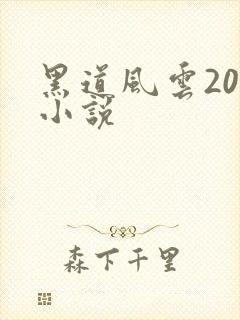 黑道風雲20
小說
森下千里